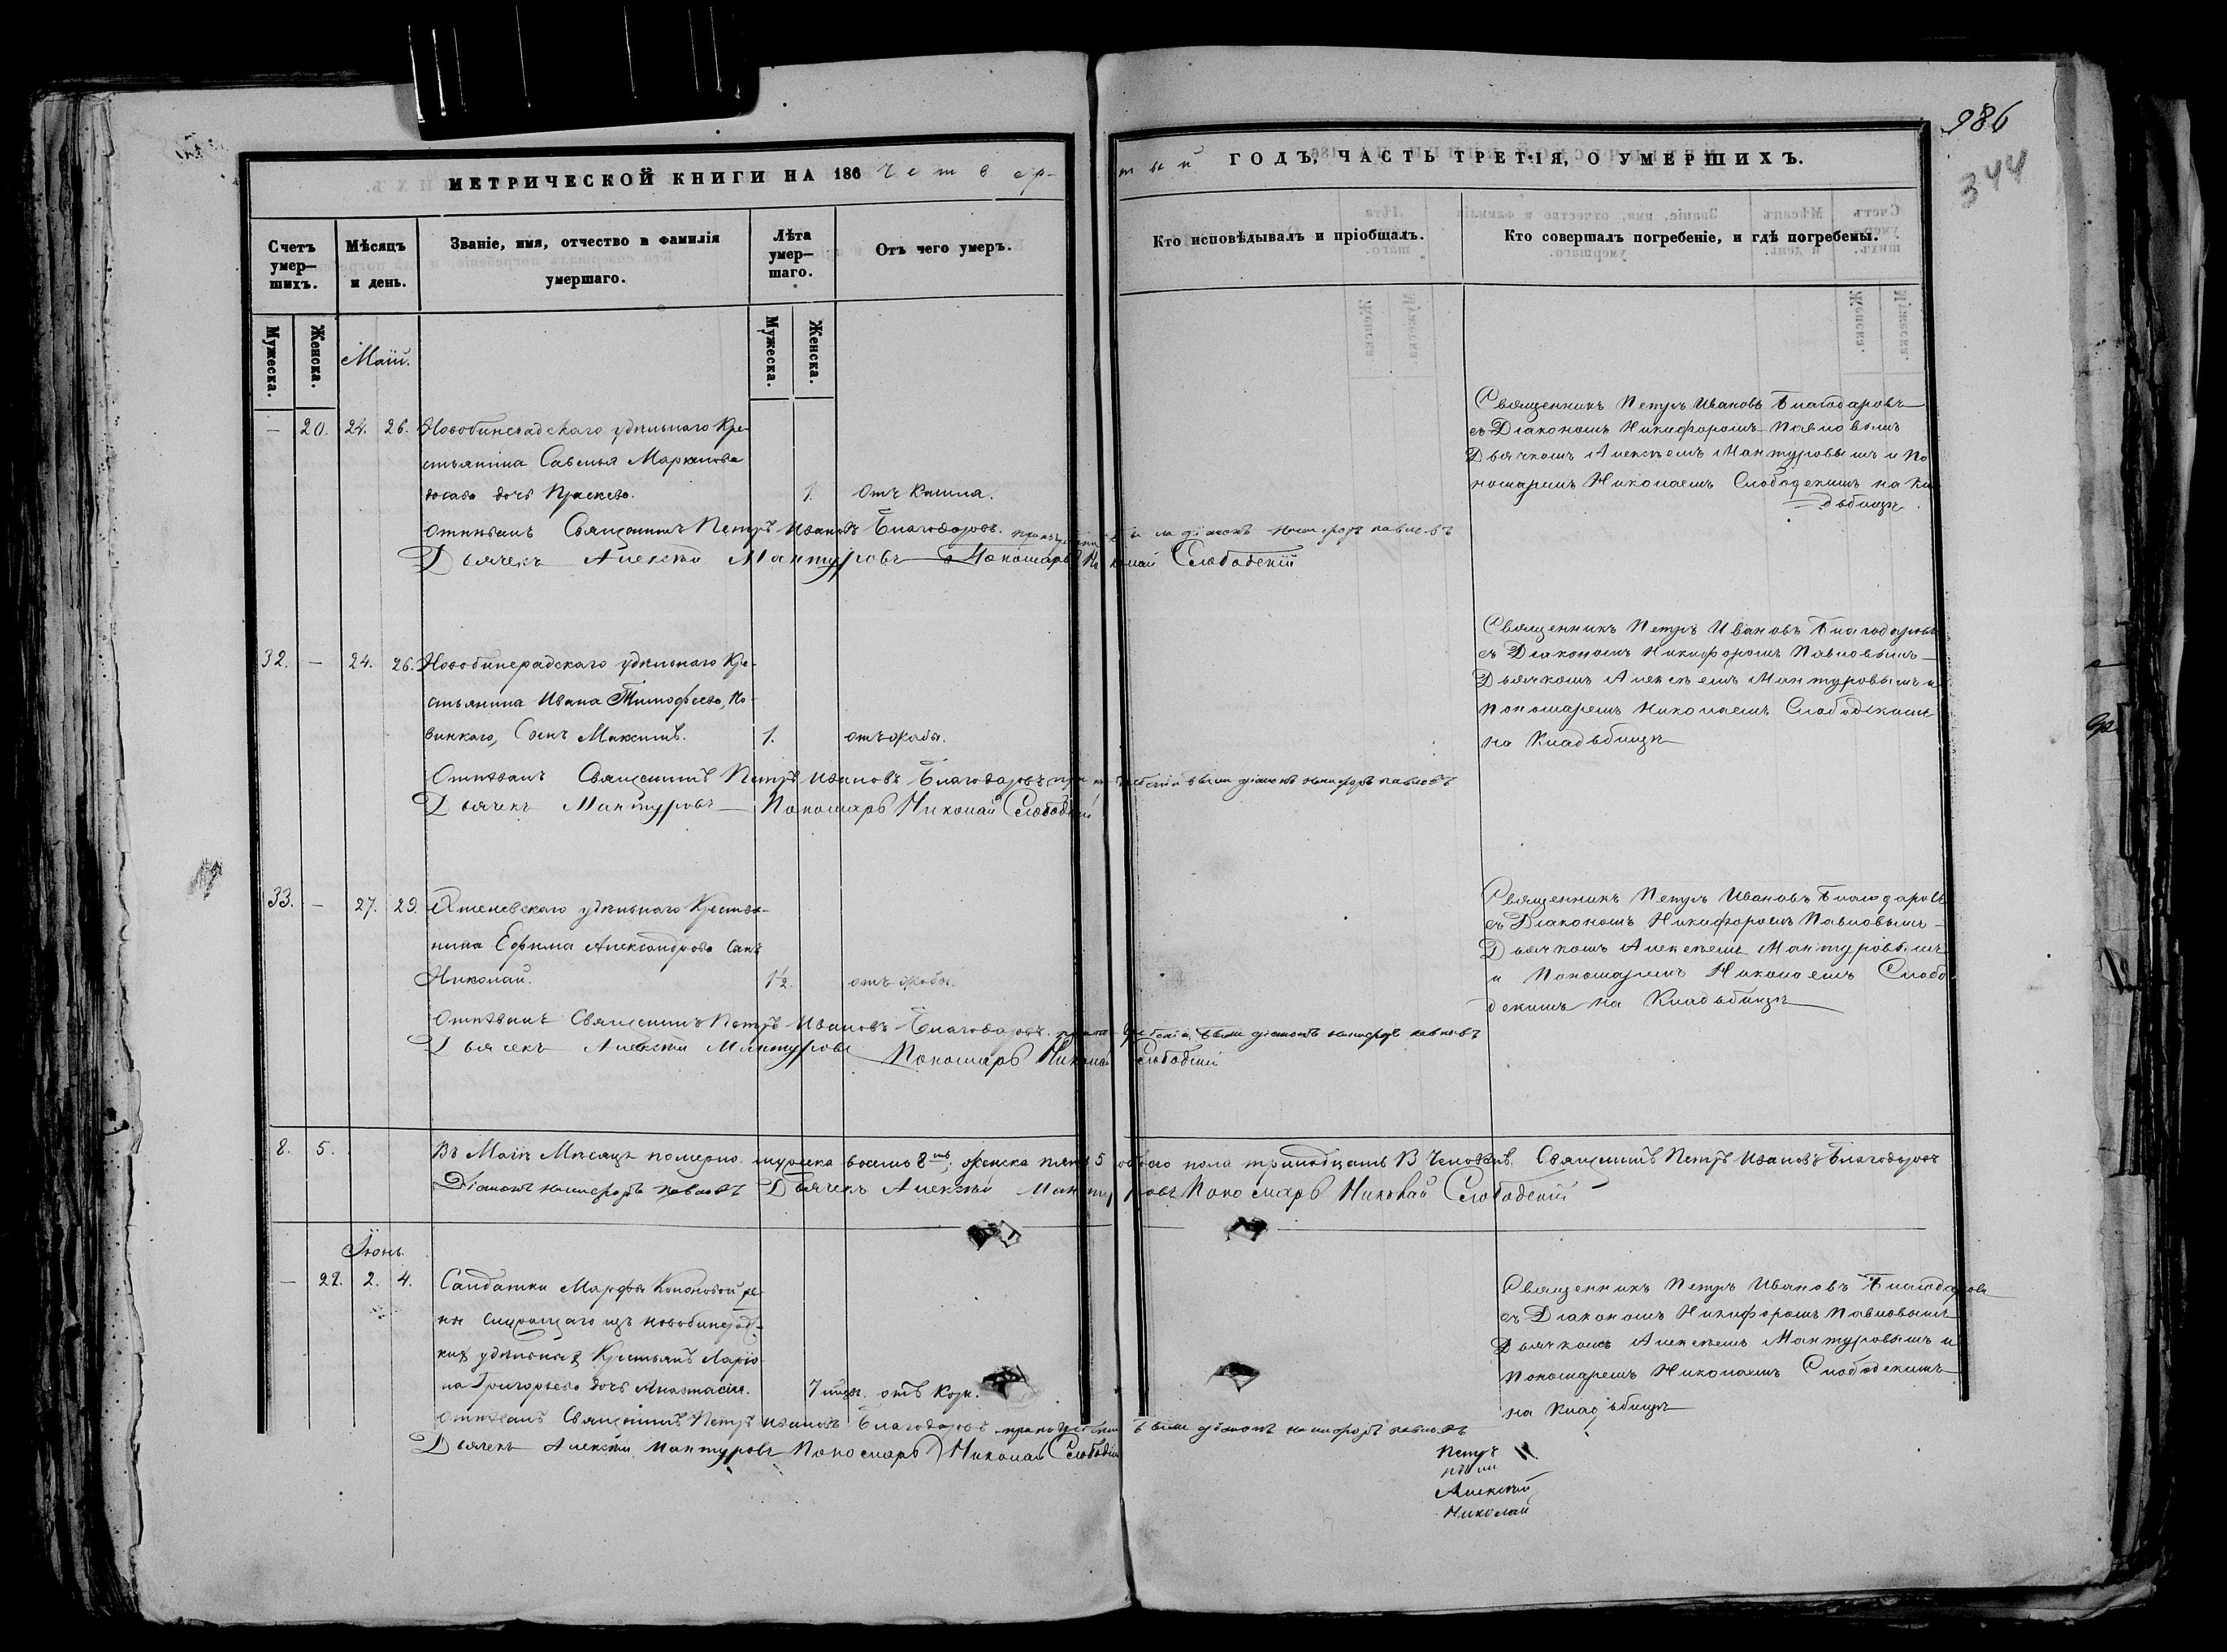 986
344
МЕТРИЧЕСКОЙ КНИГИ НА 186 четвер-
тый ГОДЪ, ЧАСТЬ ТРЕТІЯ, О УМЕРШИХЪ.
Счетъ умер— шихъ.
Мѣсяцъ и день.
Званіе, имя, отчество и фамилія умершаго.
Лѣта умер— шаго.
Отъ чего умеръ.
Кто исповѣдывалъ и пріобщалъ.
Кто совершалъ погребеніе, и гдѣ погребены.
Мужеска. Женска.
Мужеска. Женска.
Маій.
— 20. 24. 26. Новобинерадскаго удѣльнаго Кре-
стьянина Савелья Маркелова
дочь 1. отъ кашля.
Священникъ Петръ Ивановъ Благодаровъ
съ Діакономъ Никифоромъ Павловымъ
Дьячкомъ Алексѣемъ Мантуровымъ и По
номаремъ Николаемъ Слободскимъ на Кла
дьбищѣ
Отпѣвалъ Священникъ Петръ Ивановъ Благодаровъ. были діаконъ никифоръ павловъ
Дьячекъ Алексѣй Мантуровъ Пономарь Николай Слободскій
32. — 24. 26. Новобинерадскаго удѣльнаго Кре-
стьянина Ивана Тимофеева, Но-
винкаго, Сынъ Максимъ. 1. отъ жабы.
Священникъ Петръ Ивановъ Благодаровъ
съ Діакономъ Никифоромъ Павловымъ
Дьячкомъ Алексѣемъ Мантуровымъ и
Пономаремъ Николаемъ Слободскимъ
на Кладьбищѣ
Отпѣвалъ Священникъ Петръ Ивановъ Благодаровъ, при погребеніи были діаконъ никифоръ павловъ
Дьячекъ Мантуровъ Пономарь Николай Слободскій
33. — 27. 29. удѣльнаго Крестья-
нина Ефима Александрова Сынъ
Николай. 1½. отъ жабы.
Священникъ Петръ Ивановъ Благодаровъ
съ Діакономъ Никифоромъ Павловымъ
Дьячкомъ Алексѣемъ Мантуровымъ
и Пономаремъ Николаемъ Слобо
дскимъ на Кладьбищѣ
Отпѣвалъ Священникъ Петръ Ивановъ Благодаровъ. при погребеніи были діаконъ никифоръ павловъ
Дьячекъ Алексѣй Мантуровъ Пономарь Николай Слободскій
8. 5. Въ Маіѣ Мѣсяцѣ померло мужеска восемь 8, женска пять 5 обоего пола тринадцать 13 Человѣкъ. Священникъ Петръ Ивановъ Благодаровъ
Діаконъ никифоръ павловъ Дьячекъ Алексѣй Мантуровъ Пономарь Николай Слободскій
Іюнь.
— 22. 2. 4. Салдатки Марфы Кононовой же-
ны служащаго изъ новобинерад-
кихъ удѣльныхъ Крестьянъ Ларіо-
на Григорьева дочь Анастасія. 7 отъ кори.
Священникъ Петръ Ивановъ Благодаровъ
съ Діакономъ Никифоромъ Павловымъ
Дьячкомъ Алексѣемъ Мантуровымъ и
Пономаремъ Николаемъ Слободскимъ
на Кладьбищѣ
Отпѣвалъ Священникъ Петръ Ивановъ Благодаровъ при погребеніи были діаконъ никифоръ павловъ
Дьячекъ Алексѣй Мантуровъ Пономарь Николай Слободскій
Петръ
Алексѣй
Николай